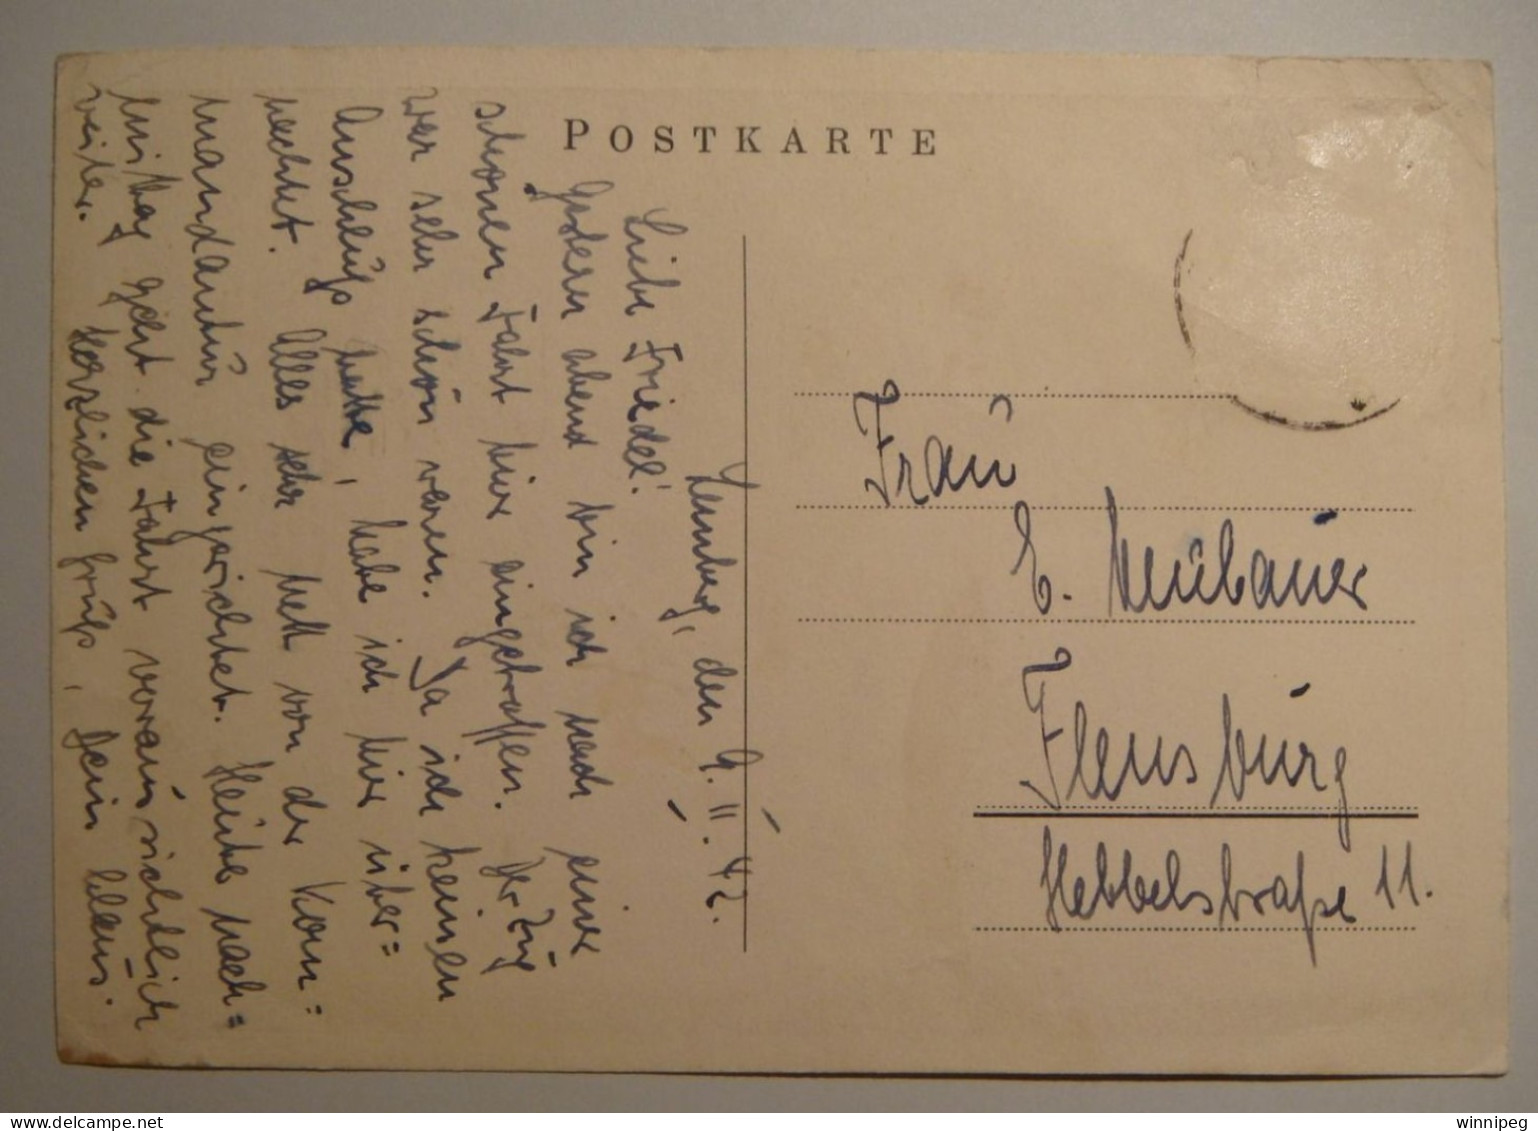 POSTKARTE
Lemberg, den 9. II. 42.
Liebe Friedel!
Gestern abend bin ich nach einer
schönen Fahrt hier eingetroffen. Der Zug
war sehr schön warm. Da ich keinen
Anschluß hatte, habe ich hier über=
nachtet. Alles sehr nett von der Kom=
mandantur eingerichtet. Heute nach=
mittag geht die Fahrt voraussichtlich
weiter. Herzlichen Gruß, Dein Claus.
Frau
E. Neubauer
Flensburg
Hebbelstraße 11.
winnipeg